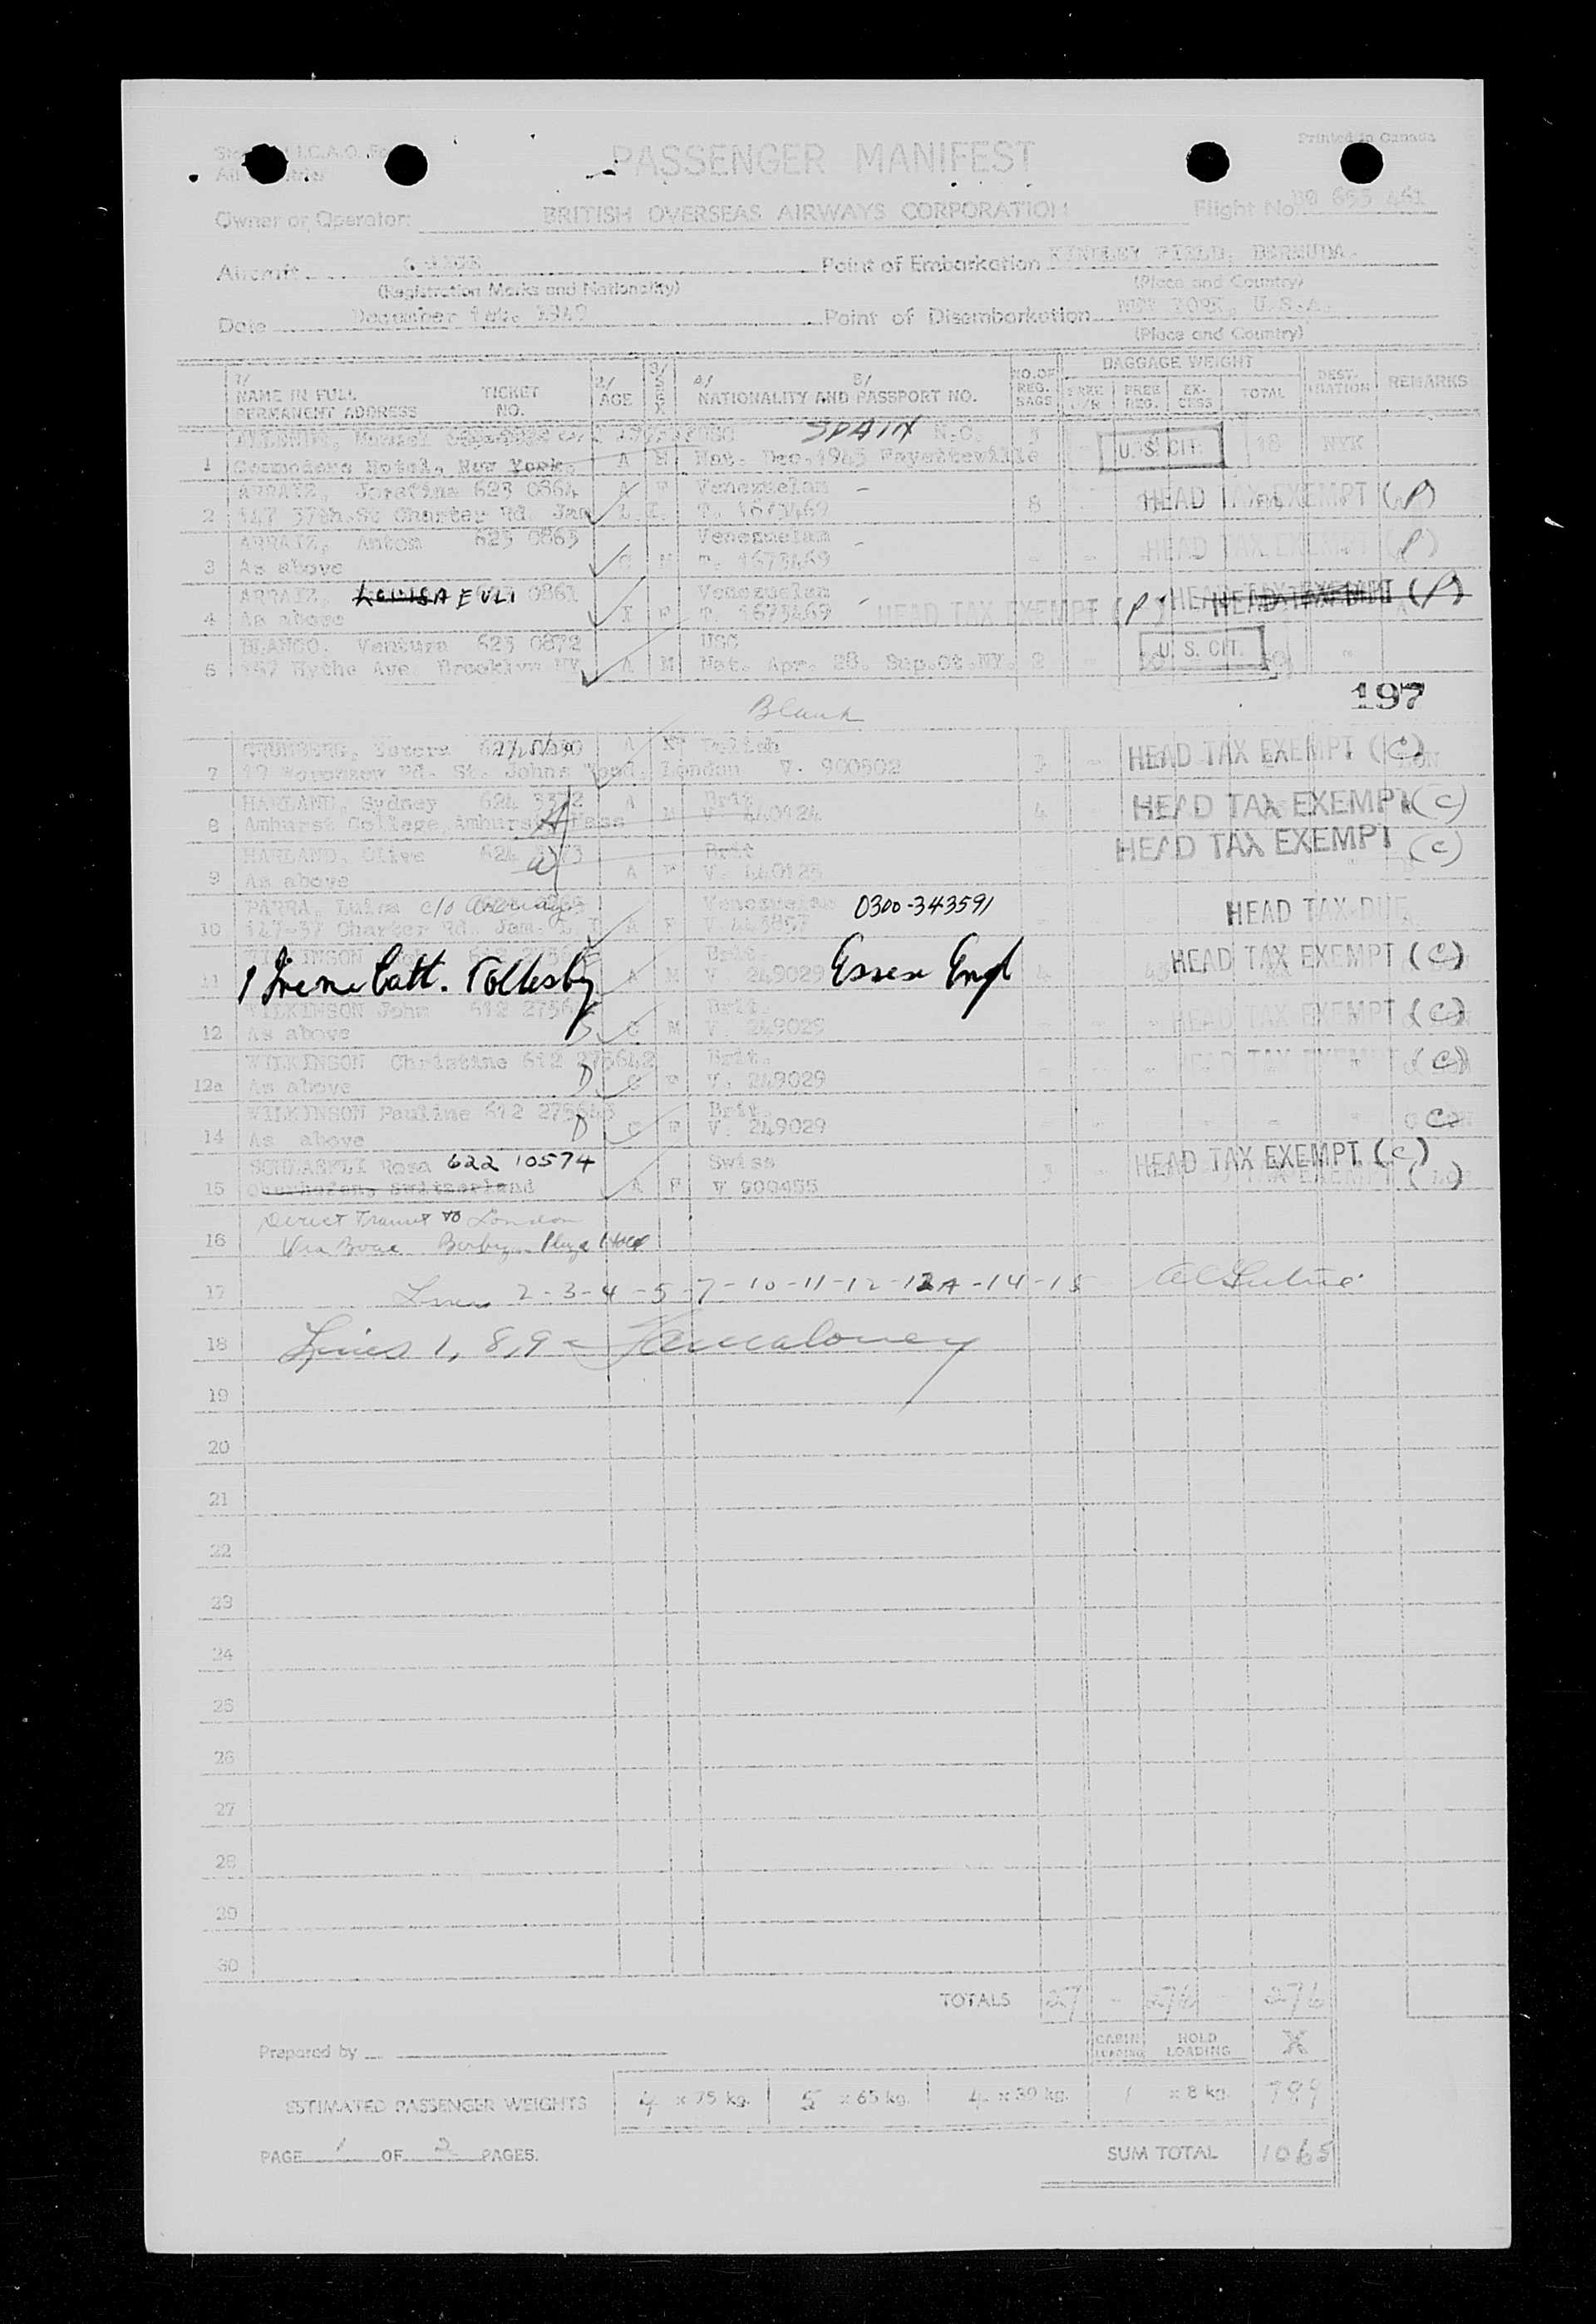 Printed in Canada
PASSENGER MANIFEST
Owner or Operator: BRITISH OVERSEAS AIRWAYS CORPORATION Flight No.
Aircraft Point of Embarkation KINDLEY FIELD, BERMUDA.
(Registration Marks and Nationality) (Place and Country)
Date December 1949 Point of Disembarkation NEW YORK, U.S.A.
(Place and Country)
1/ NAME IN FULL PERMANENT ADDRESS TICKET NO. 2/ AGE 3/ SEX 4/ 5/ NATIONALITY AND PASSPORT NO. NO. OF REG. BAGS BAGGAGE WEIGHT FREE REG. EX-CESS TOTAL DEST-INATION REMARKS
SPAIN N.C. 3
1 Commodore Hotel, New York. A M Nat. Dec. 1943 Fayetteville U. S. CIT. 18 NYK
ARRAIZ, Josefina 623 0864 A F Venezuelan
2 147 37th. St Charter Rd. Jam L.I. T. 1673469 8 HEAD TAX EXEMPT (P)
ARRAIZ, Anton 623 0863 Venezuelan
3 As above C M T. 1673469 HEAD TAX EXEMPT (P)
ARRAIZ, LOUISA EULI 0861 Venezuelan
4 As above I F T. 1673469 HEAD TAX EXEMPT (P) HEAD TAX EXEMPT (P)
BLANCO. Ventura 623 0872 USC
5 Hythe Ave. Brooklyn NY A M Nat. Apr. 28. Sup.Ct.NY. 2 U. S. CIT.
Blank
197
A Polish
7 19 Woronzow Rd. St. Johns Wood. London V. 900502 3 HEAD TAX EXEMPT (C)
HARLAND, Sydney 624 3372 A Brit
8 Amhurst College, Amhurst Mass M V 440124 4 HEAD TAX EXEMPT (C)
HARLAND, Olive 624 Brit
9 As above A F V. 440125 HEAD TAX EXEMPT (C)
PARRA, Luisa c/o Venezuelan 0300-343591
10 147-37 Charter Rd. Jam. L. I A F V 443857 HEAD TAX DUE
WILKINSON Brit.
11 1 Irene Catt. Tollesby A M V. 249029 Essex Engl 4 HEAD TAX EXEMPT (C)
WILKINSON John 612 Brit.
12 As above C M V. 249029 HEAD TAX EXEMPT (C)
WILKINSON Christine 612 275642 Brit.
12a As above D C F V. 249029 HEAD TAX EXEMPT (C)
WILKINSON Pauline 612 Brit.
14 As above D C F V. 249029 (C)
Rosa 622 10574 Swiss HEAD TAX EXEMPT (C)
15 Oberhofen, Switzerland A F V 900455 3
Direct Transit to London
16 Via Boac
17 Lines 2-3-4-5-7-10-11-12-12A-14-15
18 Lines 1, 8, 9 -
19
20
21
22
23
24
25
26
27
28
29
30
TOTALS 27 - 276 - 276
Prepared by CABIN LOADING HOLD LOADING X
ESTIMATED PASSENGER WEIGHTS 4 x 75 kg. 5 x 65 kg. 4 x 39 kg. 1 x 8 kg. 799
PAGE 1 OF 2 PAGES. SUM TOTAL 1065